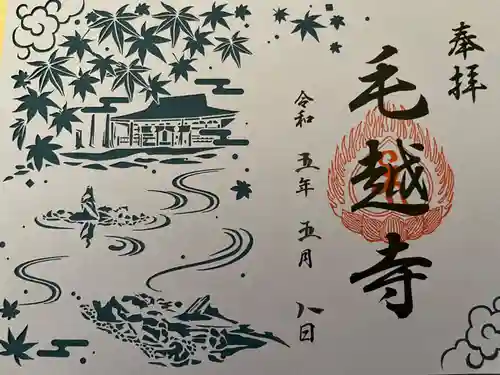 奉拝
毛越寺
令和 五年 五月 八日